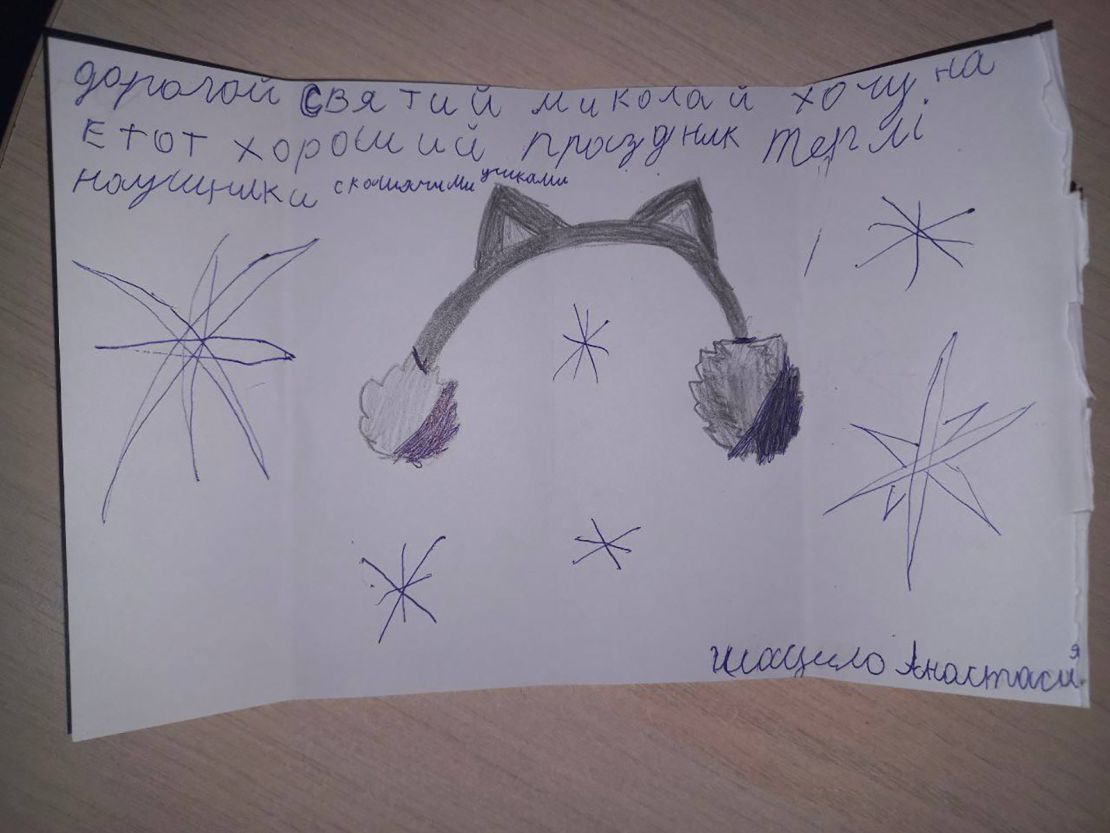 дорогой святий миколай хочу на
Етот хороший праздник теплі
наушники с кошачими ушками
шацило Анастасия